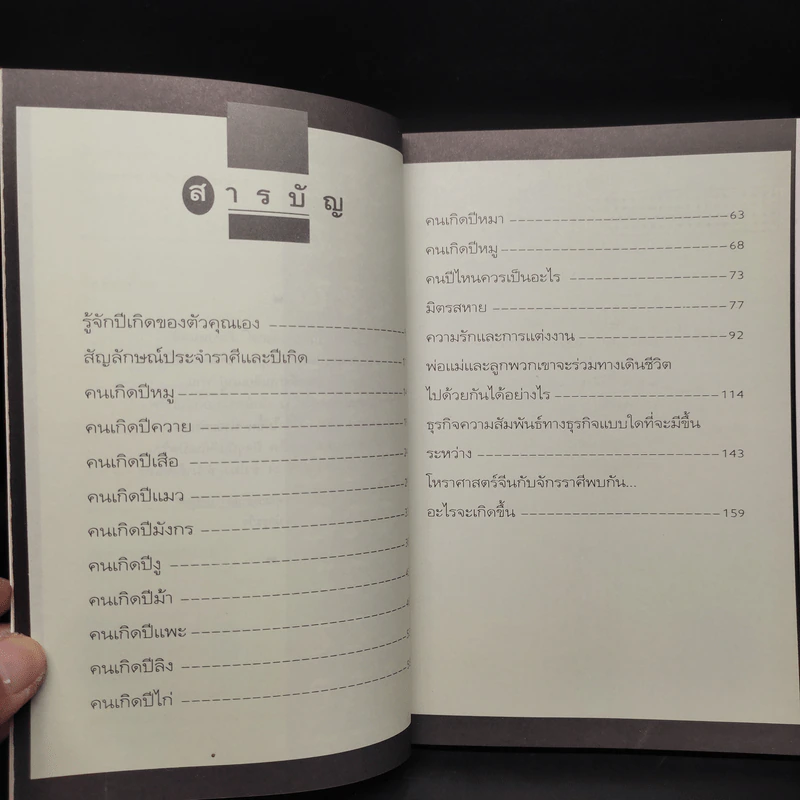 สารบัญ
รู้จักปีเกิดของตัวคุณเอง
สัญลักษณ์ประจำราศีและปีเกิด
คนเกิดปีหมู
คนเกิดปีควาย
คนเกิดปีเสือ
คนเกิดปีแมว
คนเกิดปีมังกร
คนเกิดปีงู
คนเกิดปีม้า
คนเกิดปีแพะ
คนเกิดปีลิง
คนเกิดปีไก่
คนเกิดปีหมา 63
คนเกิดปีหมู 68
คนปีไหนควรเป็นอะไร 73
มิตรสหาย 77
ความรักและการแต่งงาน 92
พ่อแม่และลูกพวกเขาจะร่วมทางเดินชีวิต
ไปด้วยกันได้อย่างไร 114
ธุรกิจความสัมพันธ์ทางธุรกิจแบบใดที่จะมีขึ้น
ระหว่าง 143
โหราศาสตร์จีนกับจักรราศีพบกัน...
อะไรจะเกิดขึ้น 159